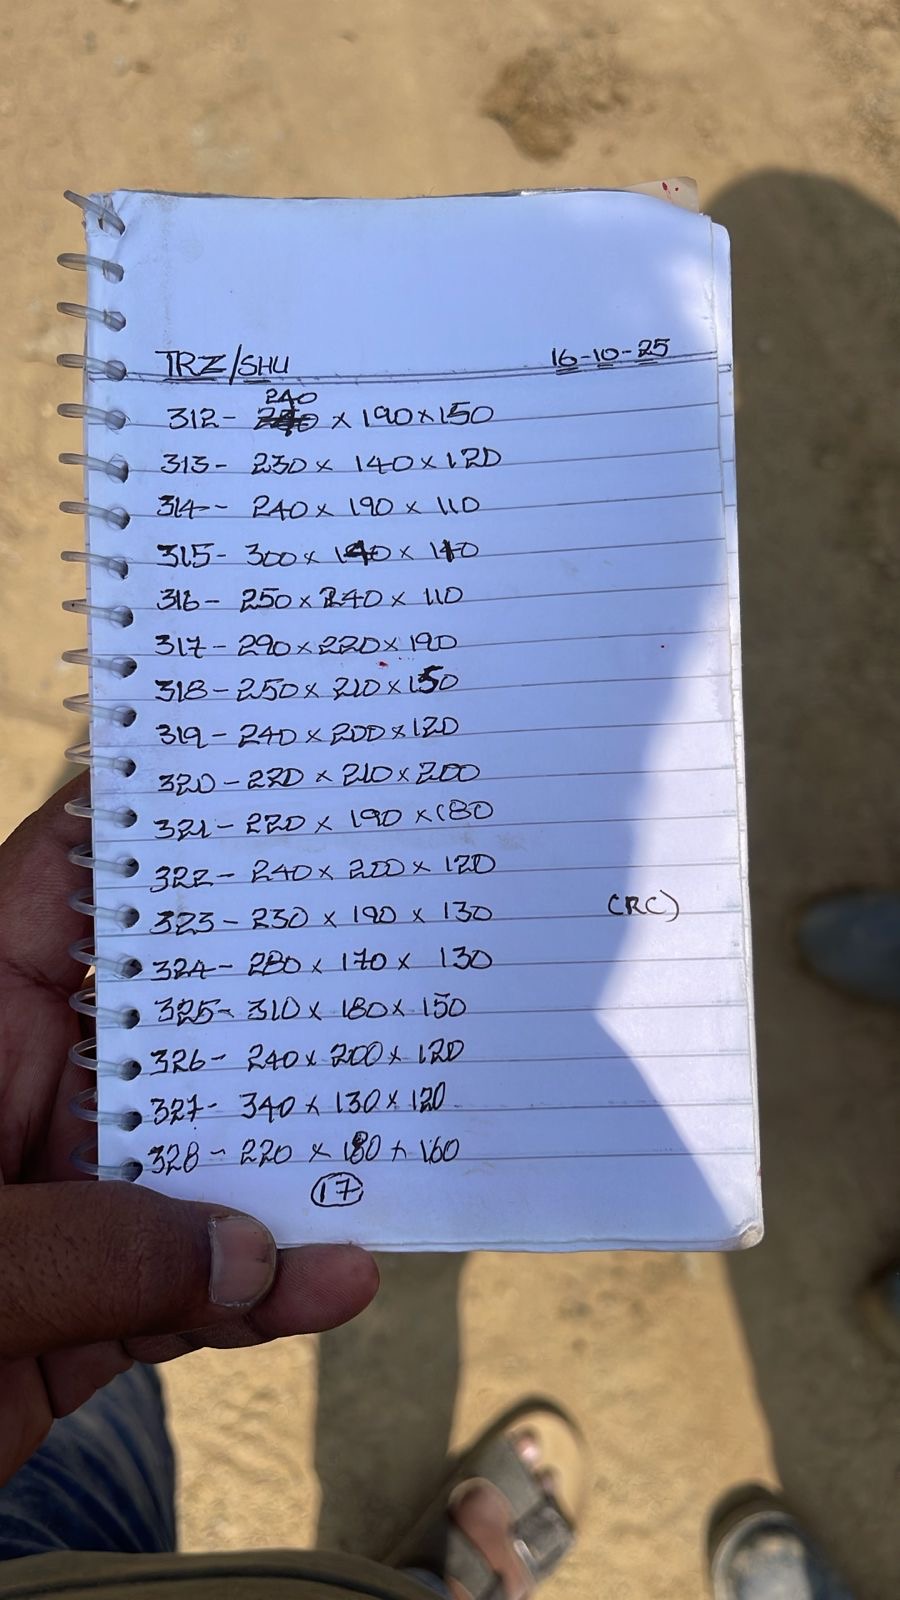 TRZ/SHU 16-10-25
312- 240 x 190x150
313- 230x 140x120
314- 240x 190 x 110
315- 300x 140 x 110
316- 250x240x 110
317- 290x220x190
318- 250x 210x150
319- 240x200x120
320- 220 x210x200
321- 220 x 190 x180
322- 240x 200x 120
323- 230 x 190 x 130 (RC)
324- 280x 170x 130
325- 310x 180x 150
326- 240x200x 120
327- 340x130x120
328- 220 x 180 x 160
17